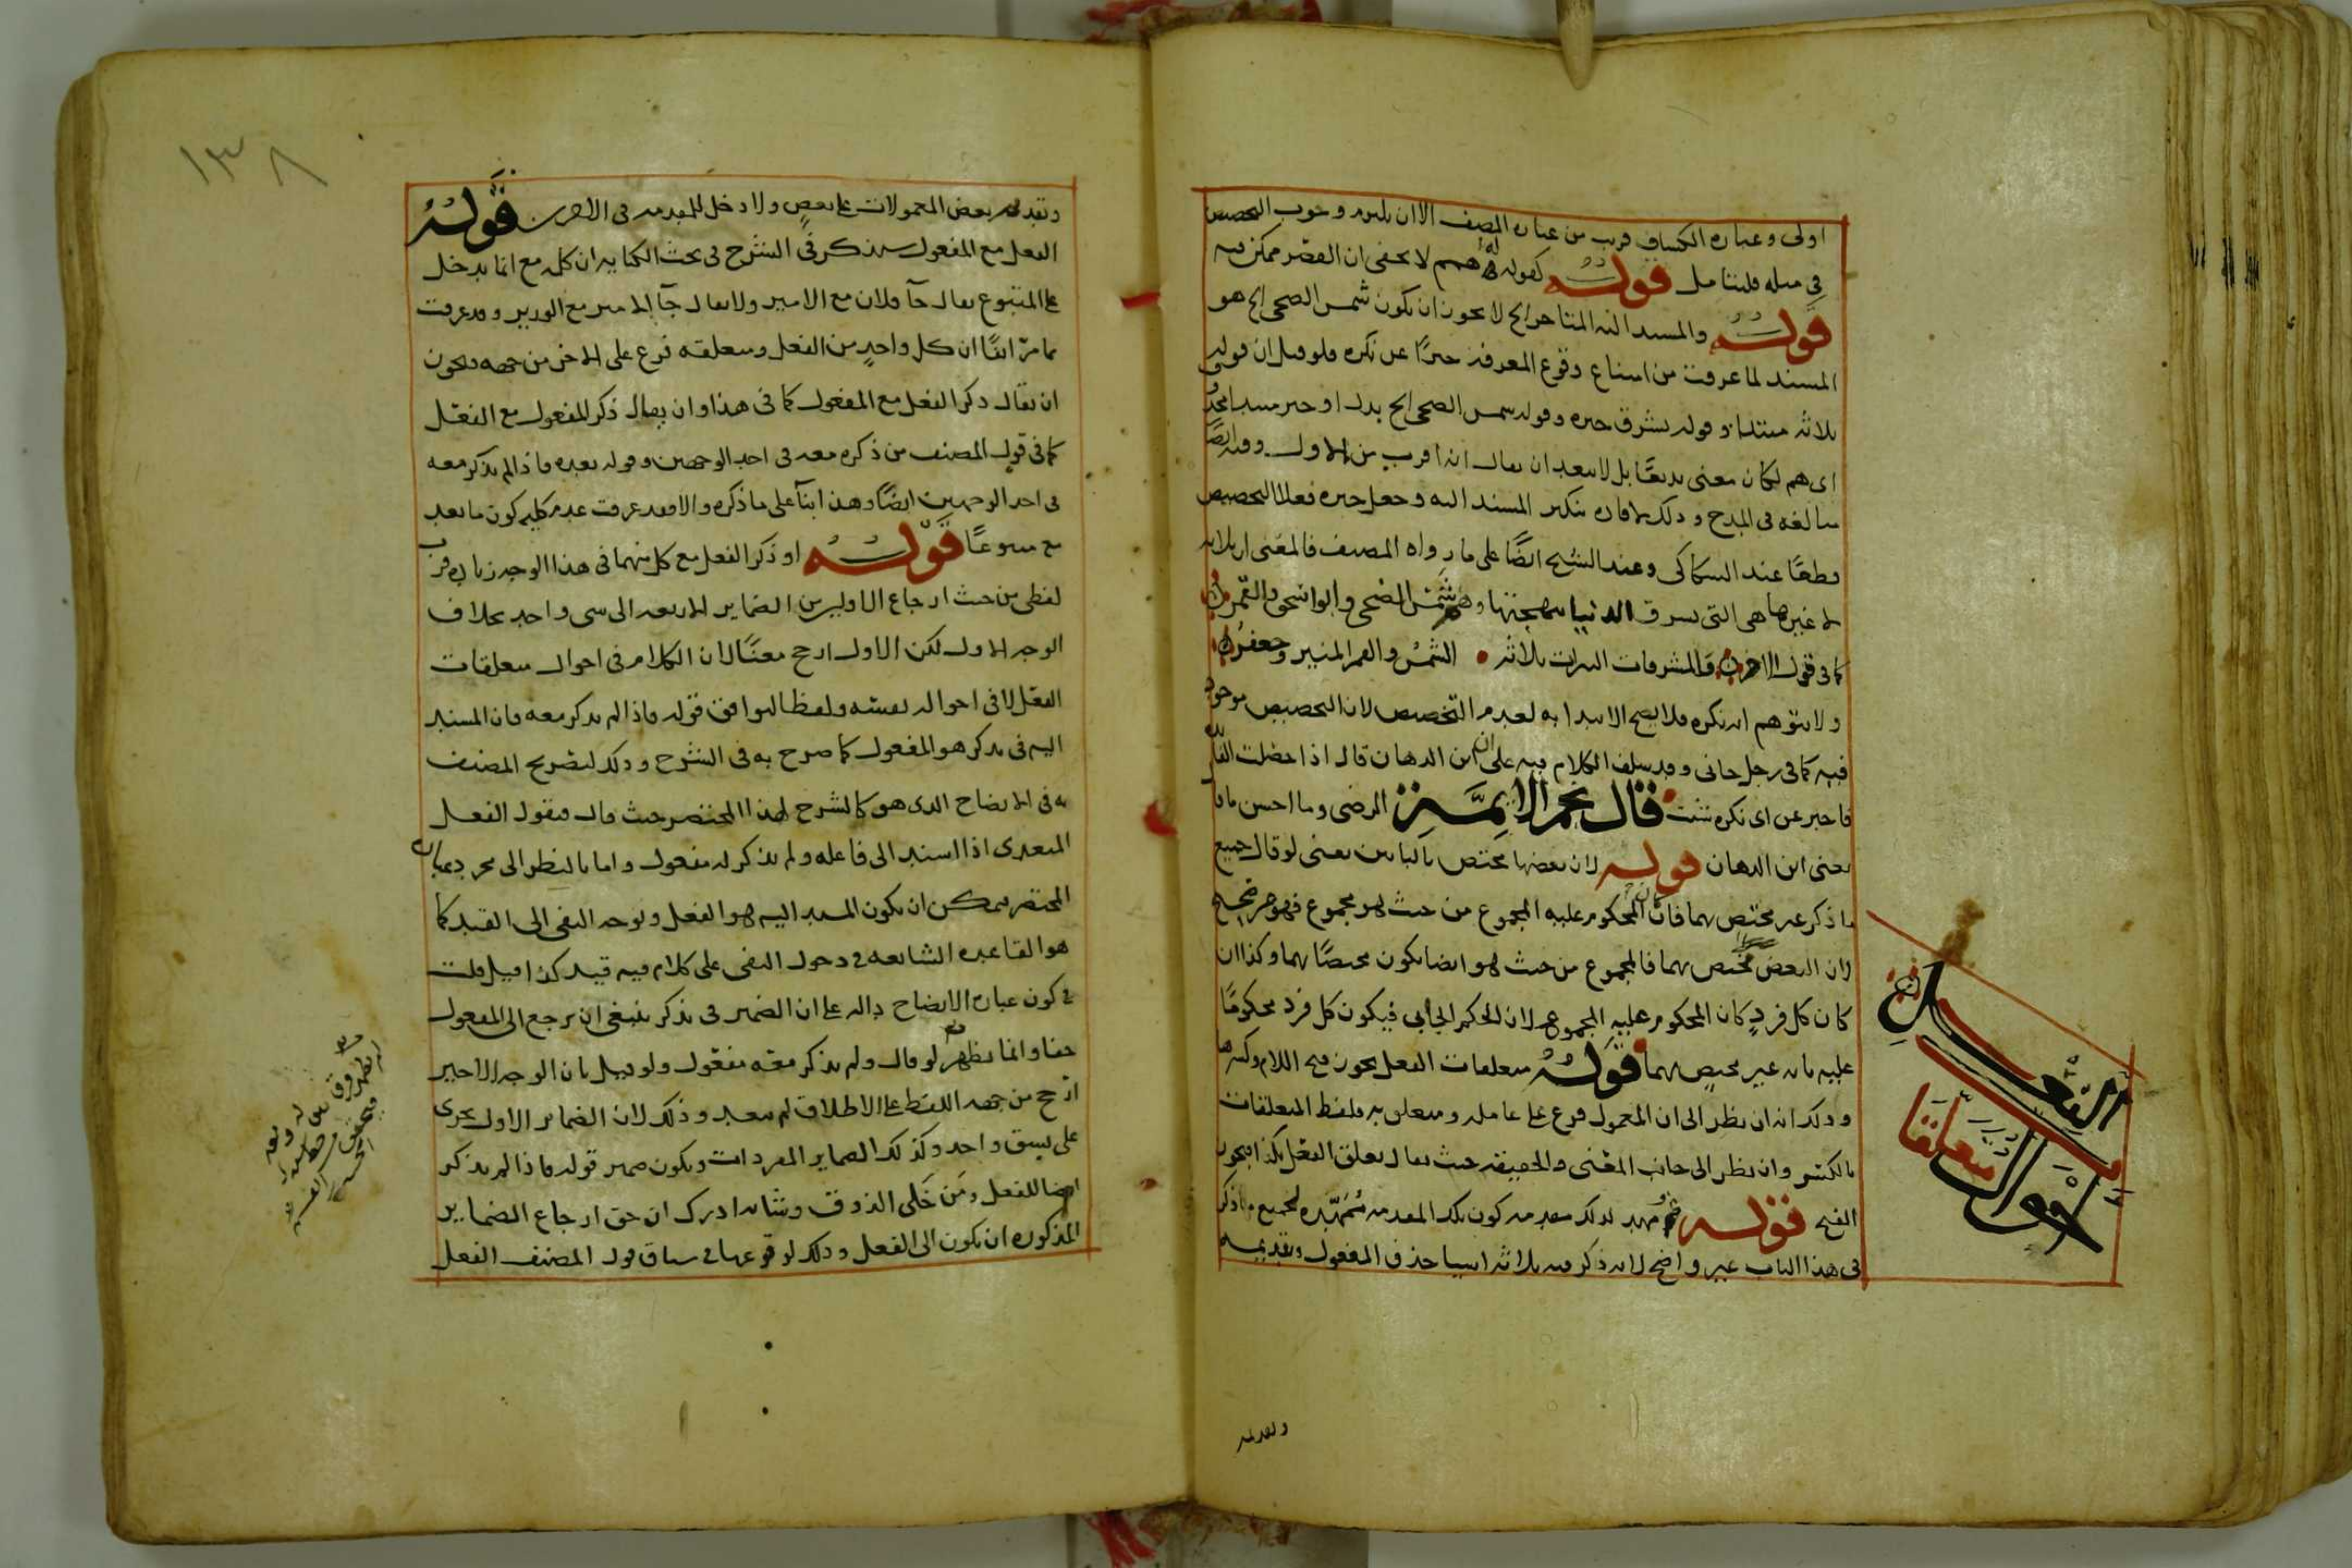 اولى وعبارة الكشاف قريب من عبارة المصنف الا ان يلتزم وجوب التخصيص
في مثله فليتامل قوله كقوله له همم لا يخفى ان القصر ممكن فيه
قوله والمسند اليه المتاخر الخ لا يجوز ان يكون شمس الضحى الخ هو
المسند لما عرفت من امتناع وقوع المعرفة خبرًا عن نكرة فلو قيل ان قوله
ثلاثة مبتدا وقوله تشرق خبره وقوله شمس الضحى الخ بدل او خبر مبتدا محذوف
اى هم لكان معنى بديعًا بل لا يبعد ان يقال انه اقرب من الاول وفيه ايضًا
مبالغة في المدح وذلك لافادة تنكير المسند اليه وجعل خبره فعلا التخصيص
قطعًا عند السكاكى وعند الشيخ ايضًا على ما رواه المصنف فالمعنى ان ثلاثة
لا غيرها هى التى تشرق الدنيا ببهجتها وهى شمس الضحى وابو اسحق والقمر
كما في قول الاخر فالمشرقات النيرات ثلاثة الشمس والقمر المنير وجعفر
ولا يتوهم انه نكرة فلا يصح الابتدا به لعدم التخصيص لان التخصيص موجود
فيه كما في رجل جانى وقد سلف الكلام فيه على ان ابن الدهان قال اذا حصلت الفائدة
فاخبر عن اى نكرة شئت قال نجم الايمة الرضى وما احسن ما قال
يعنى ابن الدهان قوله لان بعضها مختص بالبابين يعنى لو قال جميع
ما ذكر غير مختص بهما فان كان المحكوم عليه المجموع من حيث هو مجموع فهو غير صحيح
لان البعض مختص بهما فالمجموع من حيث هو ايضا يكون مختصًا بهما وكذا ان
كان كل فردٍ كان المحكوم عليه المجموع لان الحكم ايجابي فيكون كل فرد محكومًا
عليه بانه غير مختص بهما قوله متعلقات الفعل يجوز فتح اللام وكسرها
وذلك انه ان نظر الى ان المعمول فرع على عامله ومتعلق به فلفظ المتعلقات
بالكسر وان نظر الى جانب المعنى والحقيقة حيث يقال تعلق الفعل بكذا فيجوز
الفتح قوله ومهد لذلك مقدمة كون تلك المقدمة مُمَهّدة لجميع ما ذكر
فى هذا الباب غير واضح لانه ذكر فيه ثلاثة اشيا حذف المفعول وتقديمه
احوال متعلقات الفعل
وتقديمه
١٣٨
وتقديم بعض المعمولات على بعض ولا دخل للمقدمة فى الاخرين قوله
الفعل مع المفعول سيذكر في الشرح فى بحث الكناية ان كلمة مع انما تدخل
على المتبوع يقال جآ فلان مع الامير ولا يقال جآ الامير مع الوزير وقد عرفت
مما مرّ انفًا ان كل واحدٍ من الفعل ومتعلقه فرع على الاخر من جهة فيجوز
ان يقال ذكر الفعل مع المفعول كما فى هذا وان يقال ذكر المفعول مع الفعل
كما فى قول المصنف من ذكره معه فى احد الوجهين وقوله بعده فاذا لم يذكر معه
فى احد الوجهين ايضًا وهذا بنآ على ما ذكره والا فقد عرفت عدم كلية كون ما بعد
مع متبوعًا قوله او ذكر الفعل مع كل منهما فى هذا الوجه زيادة قرب
لفظى من حيث ارجاع الاولين من الضماير الاربعة الى شى واحد بخلاف
الوجه الاول لكن الاول ارجح معنًا لان الكلام فى احوال متعلقات
الفعل لا فى احواله نفسه ولفظا ليوافق قوله فاذا لم يذكر معه فان المسند
اليه فى يذكر هو المفعول كما صرح به فى الشرح وذلك لتصريح المصنف
به فى الايضاح الذى هو كالشرح لهذا المختصر حيث قال فنقول الفعل
المتعدى اذا اسند الى فاعله ولم يذكر له مفعول واما بالنظر الى مجرد عبارة
المختصر فيمكن ان يكون المسند اليه هو الفعل وتوجه النفى الى القيد كما
هو القاعدة الشايعة فى دخول النفى على كلام فيه قيد كذا قيل قلت
فى كون عبارة الايضاح دالة على ان الضمير فى يذكر ينبغى ان يرجع الى المفعول
خفا وانما يظهر لو قال ولم يذكر معه مفعول ولو قيل بان الوجه الاخير
ارجح من جهة اللفظ على الاطلاق لم يبعد وذلك لان الضماير الاول تجرى
على نسق واحد وكذلك الضماير المفردات ويكون ضمير قوله فاذا لم يذكر
ايضا للفعل ومَن خَلى الذوق وشانه ادرك ان حق ارجاع الضماير
المذكورة ان يكون الى الفعل وذلك لوقوعها فى سياق قول المصنف الفعل